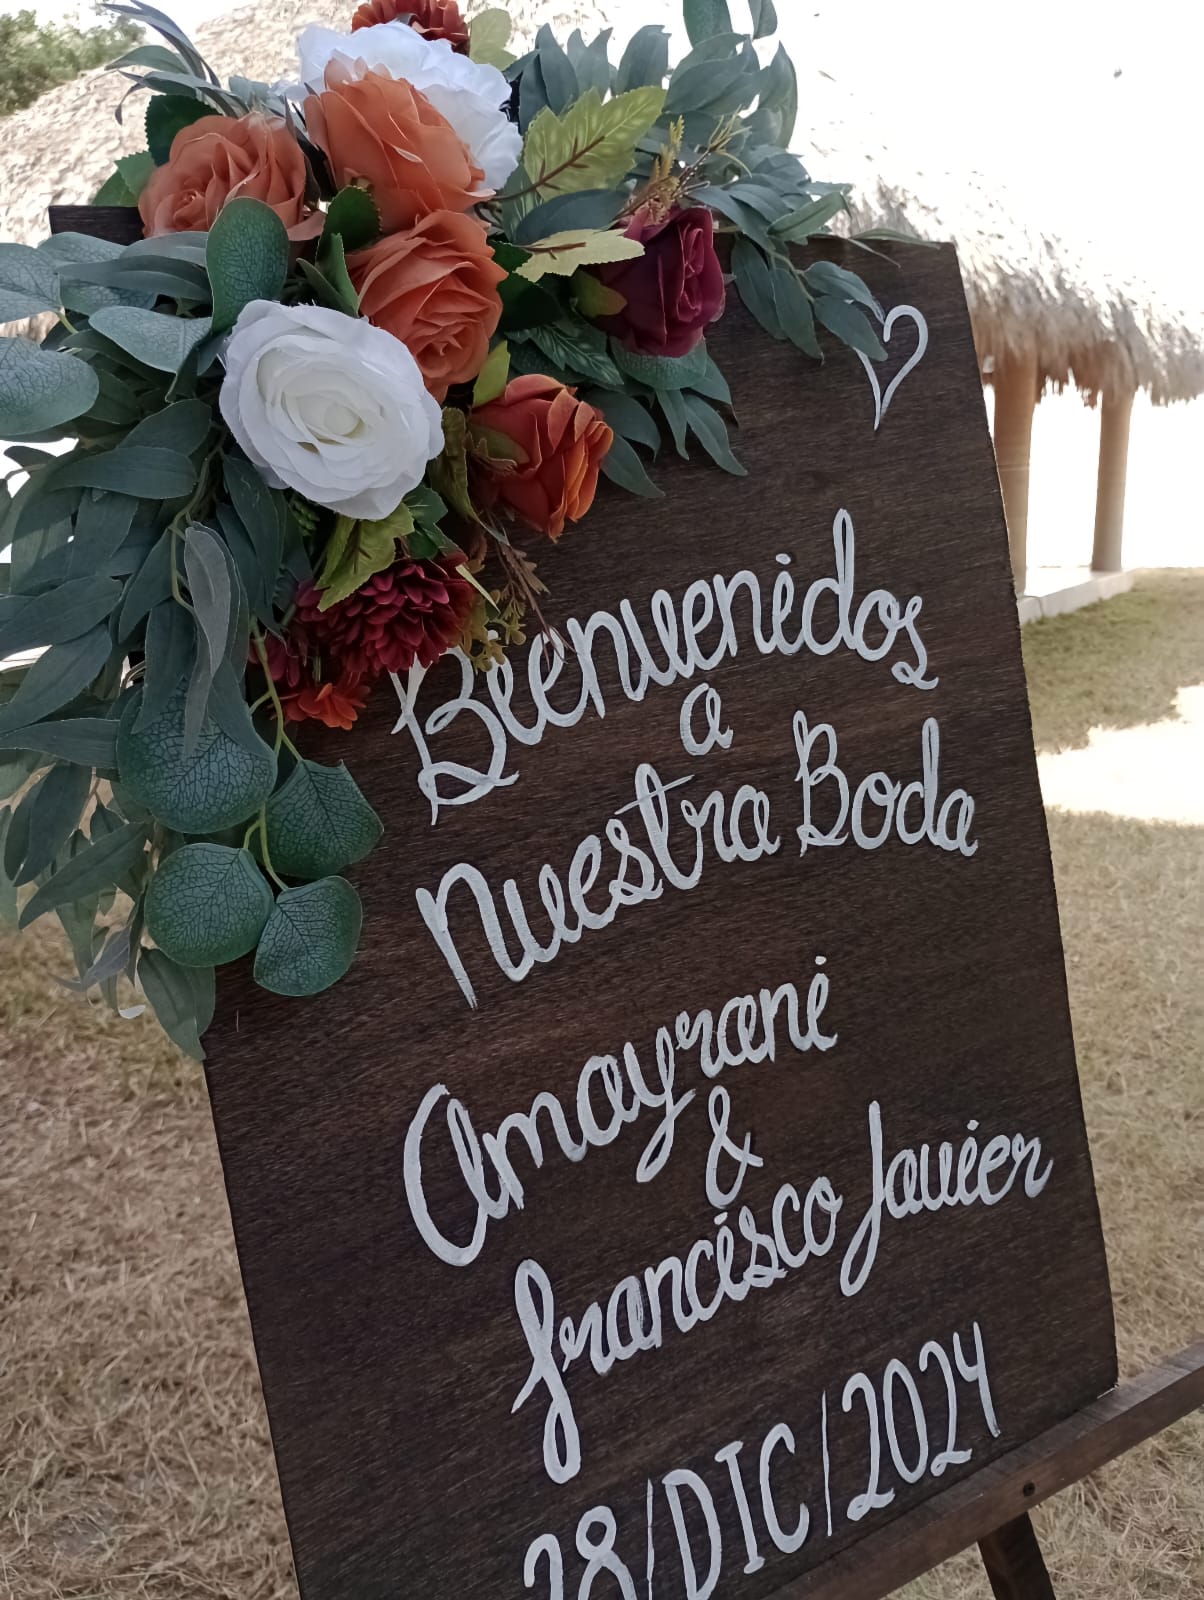 Bienvenidos
a
Nuestra Boda
Amayrani
&
Francisco Javier
28/DIC/2024